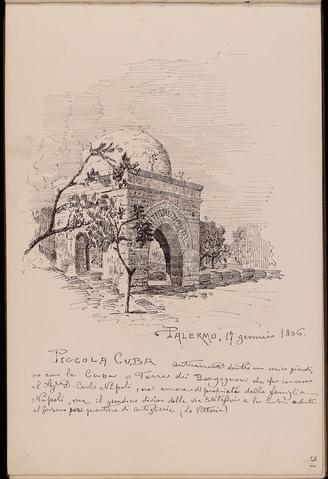 PALERMO, 17 gennaio 1896.
PICCOLA CUBA anticamente dentro un unico giardi-
no con la Cuba o Torre dei Borgognoni che fu concesso
al Carlo Nàpoli ora ancora di proprietà della famiglia
Nàpoli, ma il giardino diviso dalla via e la Cuba ceduta
al Governo per quartiere di Artiglieria (la Vittoria)
31